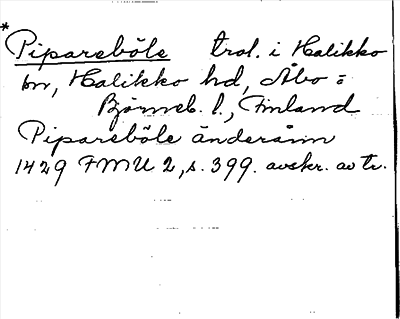 * Pipareböle trol. i Halikko
sn, Halikko hd, Åbo =
Björneb. l., Finland
Pipareböle änderänn
1429 FMU 2, s. 399. avskr. av tr.